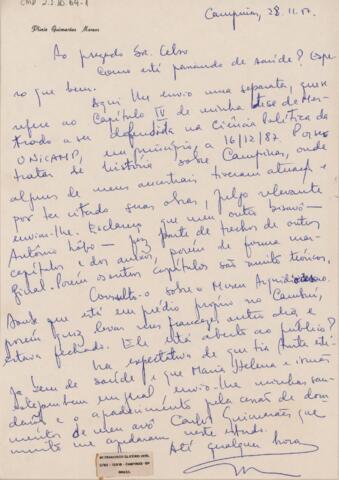 CMP 2.1.10.64-1
Plinio Guimarães Moraes
Campinas, 28.11.87.
Ao prezado Sr. Celso
Como está passando de saúde? Espe-
ro que bem.
Aqui lhe envio uma separata, que se
refere ao Capítulo IV de minha tese de Mes-
trado a ser defendida na Ciência Política da
UNICAMP, em princípio, a 16/12/87. Por se
tratar de história sobre Campinas, onde
alguns de meus ancestrais tiveram atuação e
por ter citado suas obras, julgo relevante
enviar-lhe. Esclareço que meu outro bisavô —
Antônio Lobo — faz parte de trechos de outros
capítulos e dos anexos, porém de forma mar-
ginal. Porém os outros capítulos são muito teóricos.
Consulto-o sobre o Museu Arquidiocesano.
Soube que está em prédio próprio no Cambuí,
porém quis levar uns franceses outro dia e
estava fechado. Ele está aberto ao público?
Na expectativa de que sua
já bem de saúde e que Maria Helena e irmãs
estejam bem em geral, envio-lhe minhas sau-
dações e o agradecimento pela cessão de docu-
mentos de meu avô Carlos Guimarães que
muito me ajudaram neste estudo.
Até qualquer hora
CAMPINAS-SP
BRASIL